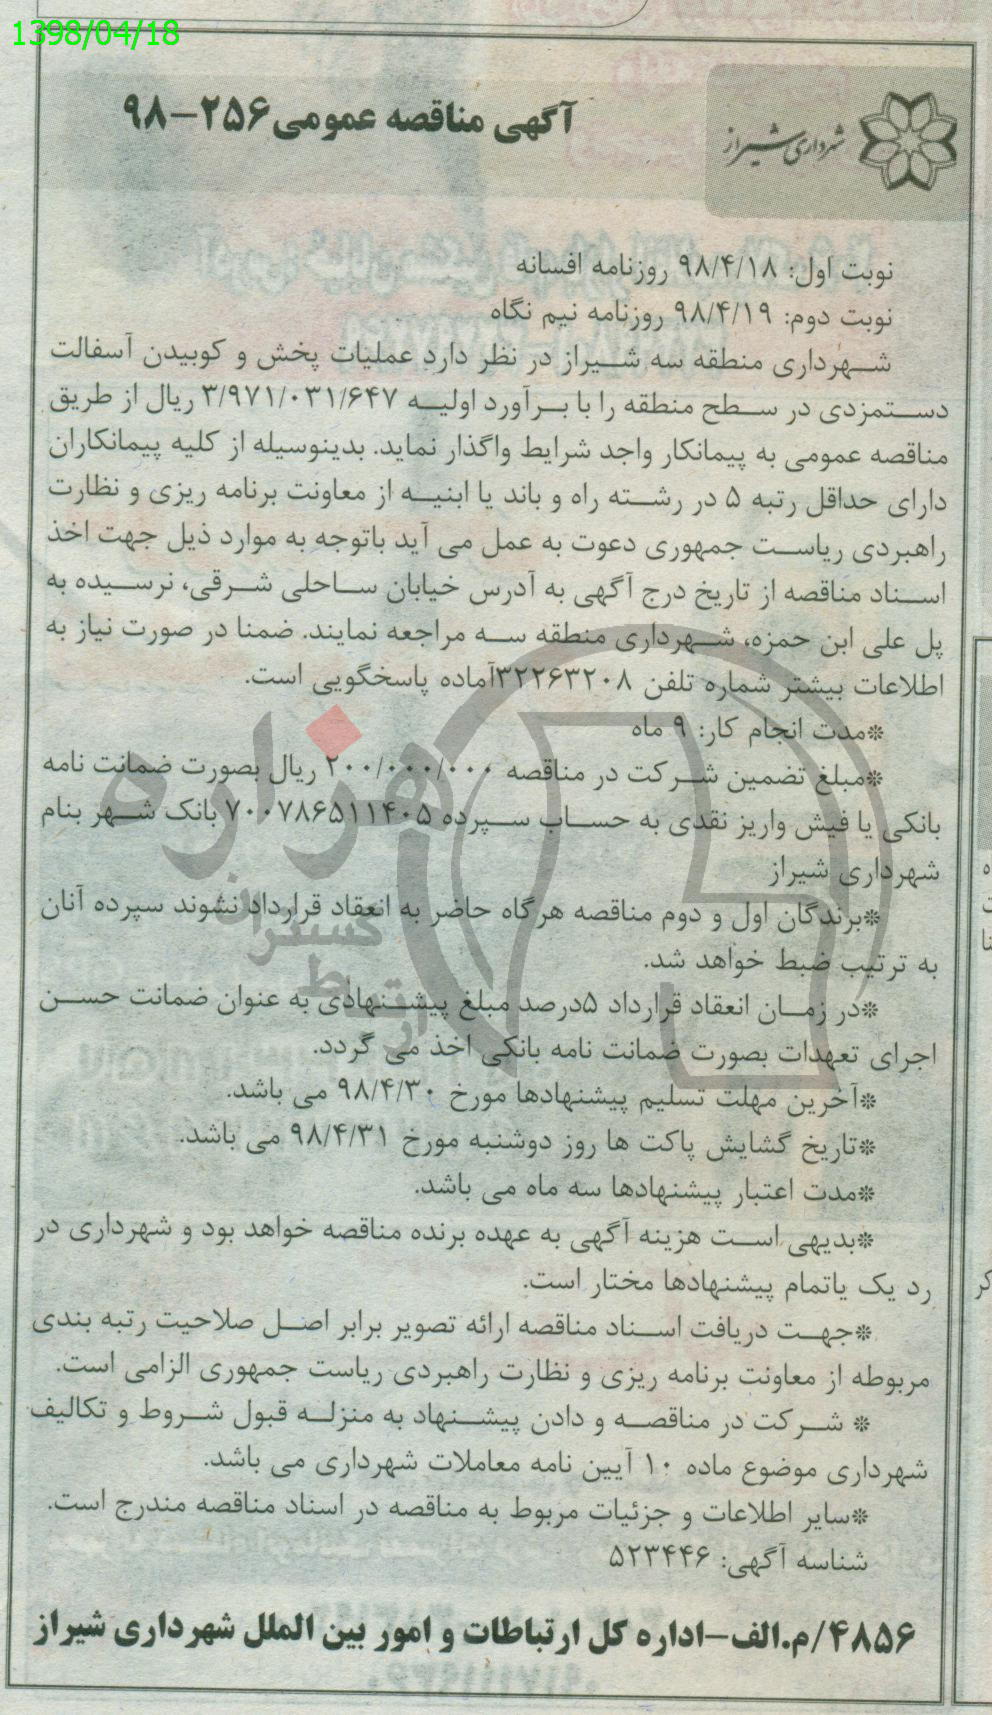 1398/04/18
شهرداری شیراز
آگهی مناقصه عمومی ۲۵۶-۹۸
نوبت اول: ۹۸/۴/۱۸ روزنامه افسانه
نوبت دوم: ۹۸/۴/۱۹ روزنامه نیم نگاه
شهرداری منطقه سه شیراز در نظر دارد عملیات پخش و کوبیدن آسفالت
دستمزدی در سطح منطقه را با برآورد اولیه ۳/۹۷۱/۰۳۱/۶۴۷ ریال از طریق
مناقصه عمومی به پیمانکار واجد شرایط واگذار نماید. بدینوسیله از کلیه پیمانکاران
دارای حداقل رتبه ۵ در رشته راه و باند یا ابنیه از معاونت برنامه ریزی و نظارت
راهبردی ریاست جمهوری دعوت به عمل می آید باتوجه به موارد ذیل جهت اخذ
اسناد مناقصه از تاریخ درج آگهی به آدرس خیابان ساحلی شرقی، نرسیده به
پل علی ابن حمزه، شهرداری منطقه سه مراجعه نمایند. ضمنا در صورت نیاز به
اطلاعات بیشتر شماره تلفن ۳۲۲۶۳۲۰۸آماده پاسخگویی است.
*مدت انجام کار: ۹ ماه
*مبلغ تضمین شرکت در مناقصه ۲۰۰/۰۰۰/۰۰۰ ریال بصورت ضمانت نامه
بانکی یا فیش واریز نقدی به حساب سپرده ۷۰۰۷۸۶۵۱۱۴۰۵ بانک شهر بنام
شهرداری شیراز
*برندگان اول و دوم مناقصه هرگاه حاضر به انعقاد قرارداد نشوند سپرده آنان
به ترتیب ضبط خواهد شد.
*در زمان انعقاد قرارداد ۵درصد مبلغ پیشنهادی به عنوان ضمانت حسن
اجرای تعهدات بصورت ضمانت نامه بانکی اخذ می گردد.
*آخرین مهلت تسلیم پیشنهادها مورخ ۹۸/۴/۳۰ می باشد.
*تاریخ گشایش پاکت ها روز دوشنبه مورخ ۹۸/۴/۳۱ می باشد.
*مدت اعتبار پیشنهادها سه ماه می باشد.
*بدیهی است هزینه آگهی به عهده برنده مناقصه خواهد بود و شهرداری در
رد یک یاتمام پیشنهادها مختار است.
*جهت دریافت اسناد مناقصه ارائه تصویر برابر اصل صلاحیت رتبه بندی
مربوطه از معاونت برنامه ریزی و نظارت راهبردی ریاست جمهوری الزامی است.
* شرکت در مناقصه و دادن پیشنهاد به منزله قبول شروط و تکالیف
شهرداری موضوع ماده ۱۰ آیین نامه معاملات شهرداری می باشد.
*سایر اطلاعات و جزئیات مربوط به مناقصه در اسناد مناقصه مندرج است.
شناسه آگهی: ۵۲۳۴۴۶
۴۸۵۶/م.الف-اداره کل ارتباطات و امور بین الملل شهرداری شیراز
هزاره
گستران
ارتباط